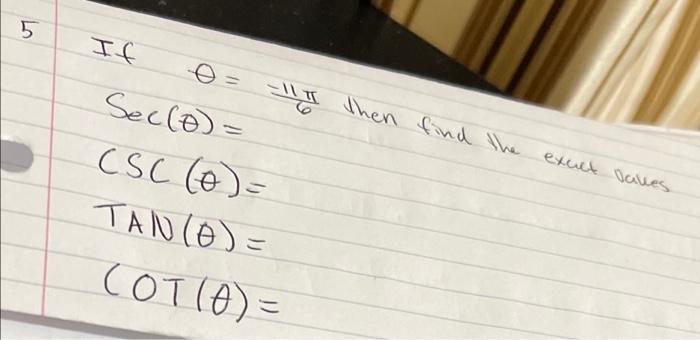 5 If θ = -11π/6 then find the exact values
Sec(θ) =
CSC(θ) =
TAN(θ) =
COT(θ) =